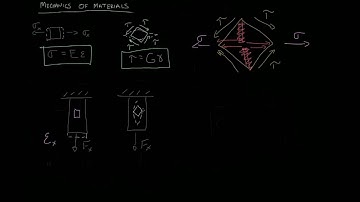 MECHANICS OF MATERIALS
σx σx
σ = Eε
τ τ
τ = Gγ
τ τ
σ σ
τ τ
εx Fx Fx